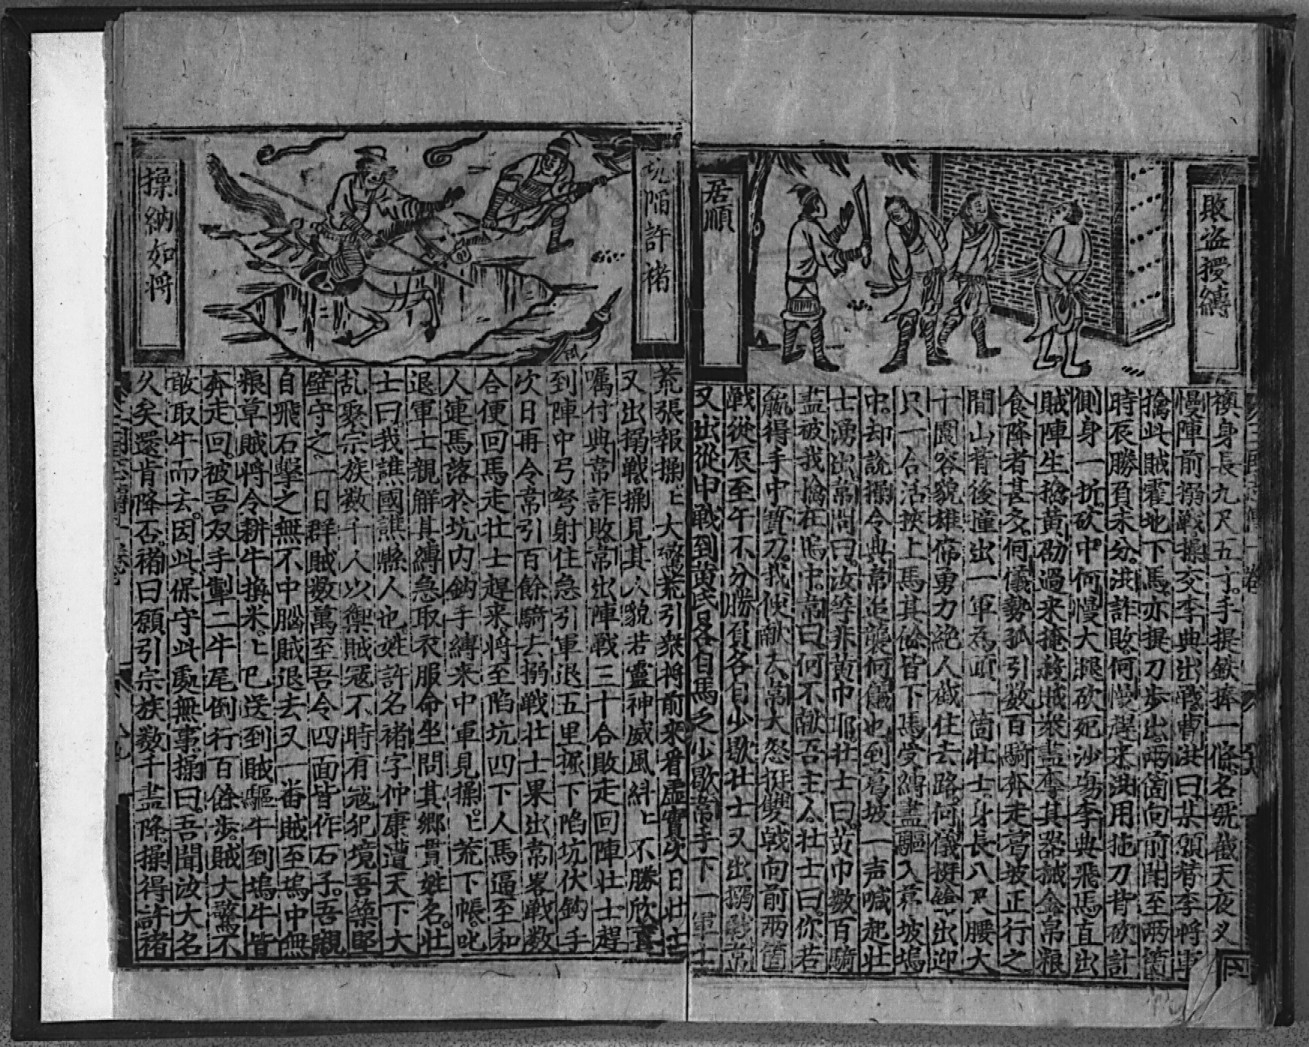 敗盗授縛
居順
襖身長九尺五寸手提鉄捧一條名號截天夜叉
慢陣前搦戦操交李典出戦曹洪曰某願替李将軍
擒此賊霍地下馬亦提刀歩出两箇向前鬧至两箇
時辰勝負未分洪詐敗何慢趕来洪用拖刀背砍計
側身一折砍中何慢大腿砍死沙塲李典飛馬直出
賊陣生擒黄劭過来掩殺賊衆盡奪其器械金帛粮
食降者甚多何儀勢孤引数百騎奔走葛坡正行之
間山背後撞出一軍為頭一箇壮士身長八尺腰大
十圍容貌雄偉勇力絶人截住去路何儀挺鎗出迎
只一合活挾上馬其餘皆下馬受縛盡驅入葛坡塢
中却説操令典韋追襲何儀也到葛坡一声喊起壮
士湧出韋問曰汝等非黄巾耶壮士曰黄巾数百騎
盡被我擒在塢中韋曰何不献吾主公壮士曰你若
贏得手中寳刀我便献去韋大怒挺雙戟向前两箇
戦從辰至午不分勝負各自少歇壮士又出搦戦韋
又出從中戦到黄昏各自馬乏少歇韋手下一軍士
玩陷許褚
操納如将
荒張報操上大驚荒引衆将前来看虚實次日壮士
又出搦戦操見其人貌若靈神威風糾上不勝欣喜
囑付典韋詐敗韋出陣戦三十合敗走回陣壮士趕
到陣中弓弩射住急引軍退五里掘下陷坑伏鈎手
次日再令韋引百餘騎去搦戦壮士果出韋畧戦数
合便回馬走壮士趕来将至陷坑四下人馬逼至和
人連馬落於坑内鈎手縛来中軍見操上荒下帳叱
退軍士親觧其縛急取衣服命坐問其郷貫姓名壮
士曰我譙國譙縣人也姓許名褚字仲康遭天下大
乱聚宗族数千人以禦賊寇不時有寇犯境吾築堅
壁守之一日群賊数萬至吾令四面皆作石子吾親
自飛石擊之無不中腦賊退去又一番賊至塢中無
粮草賊将令耕牛換米上已送到賊驅牛到塢牛皆
奔走回被吾双手掣二牛尾倒行百餘歩賊大驚不
敢取牛而去因此保守此處無事操曰吾聞汝大名
久矣還肯降否褚曰願引宗族数千盡降操得許褚